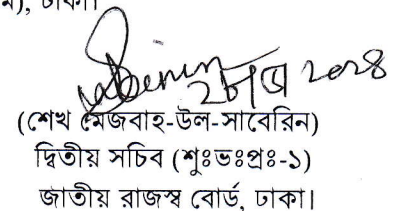 ঢাকা।
২০২৪
(শেখ মেজবাহ-উল-সাবেরিন)
দ্বিতীয় সচিব (শুঃভঃপ্রঃ-১)
জাতীয় রাজস্ব বোর্ড, ঢাকা।